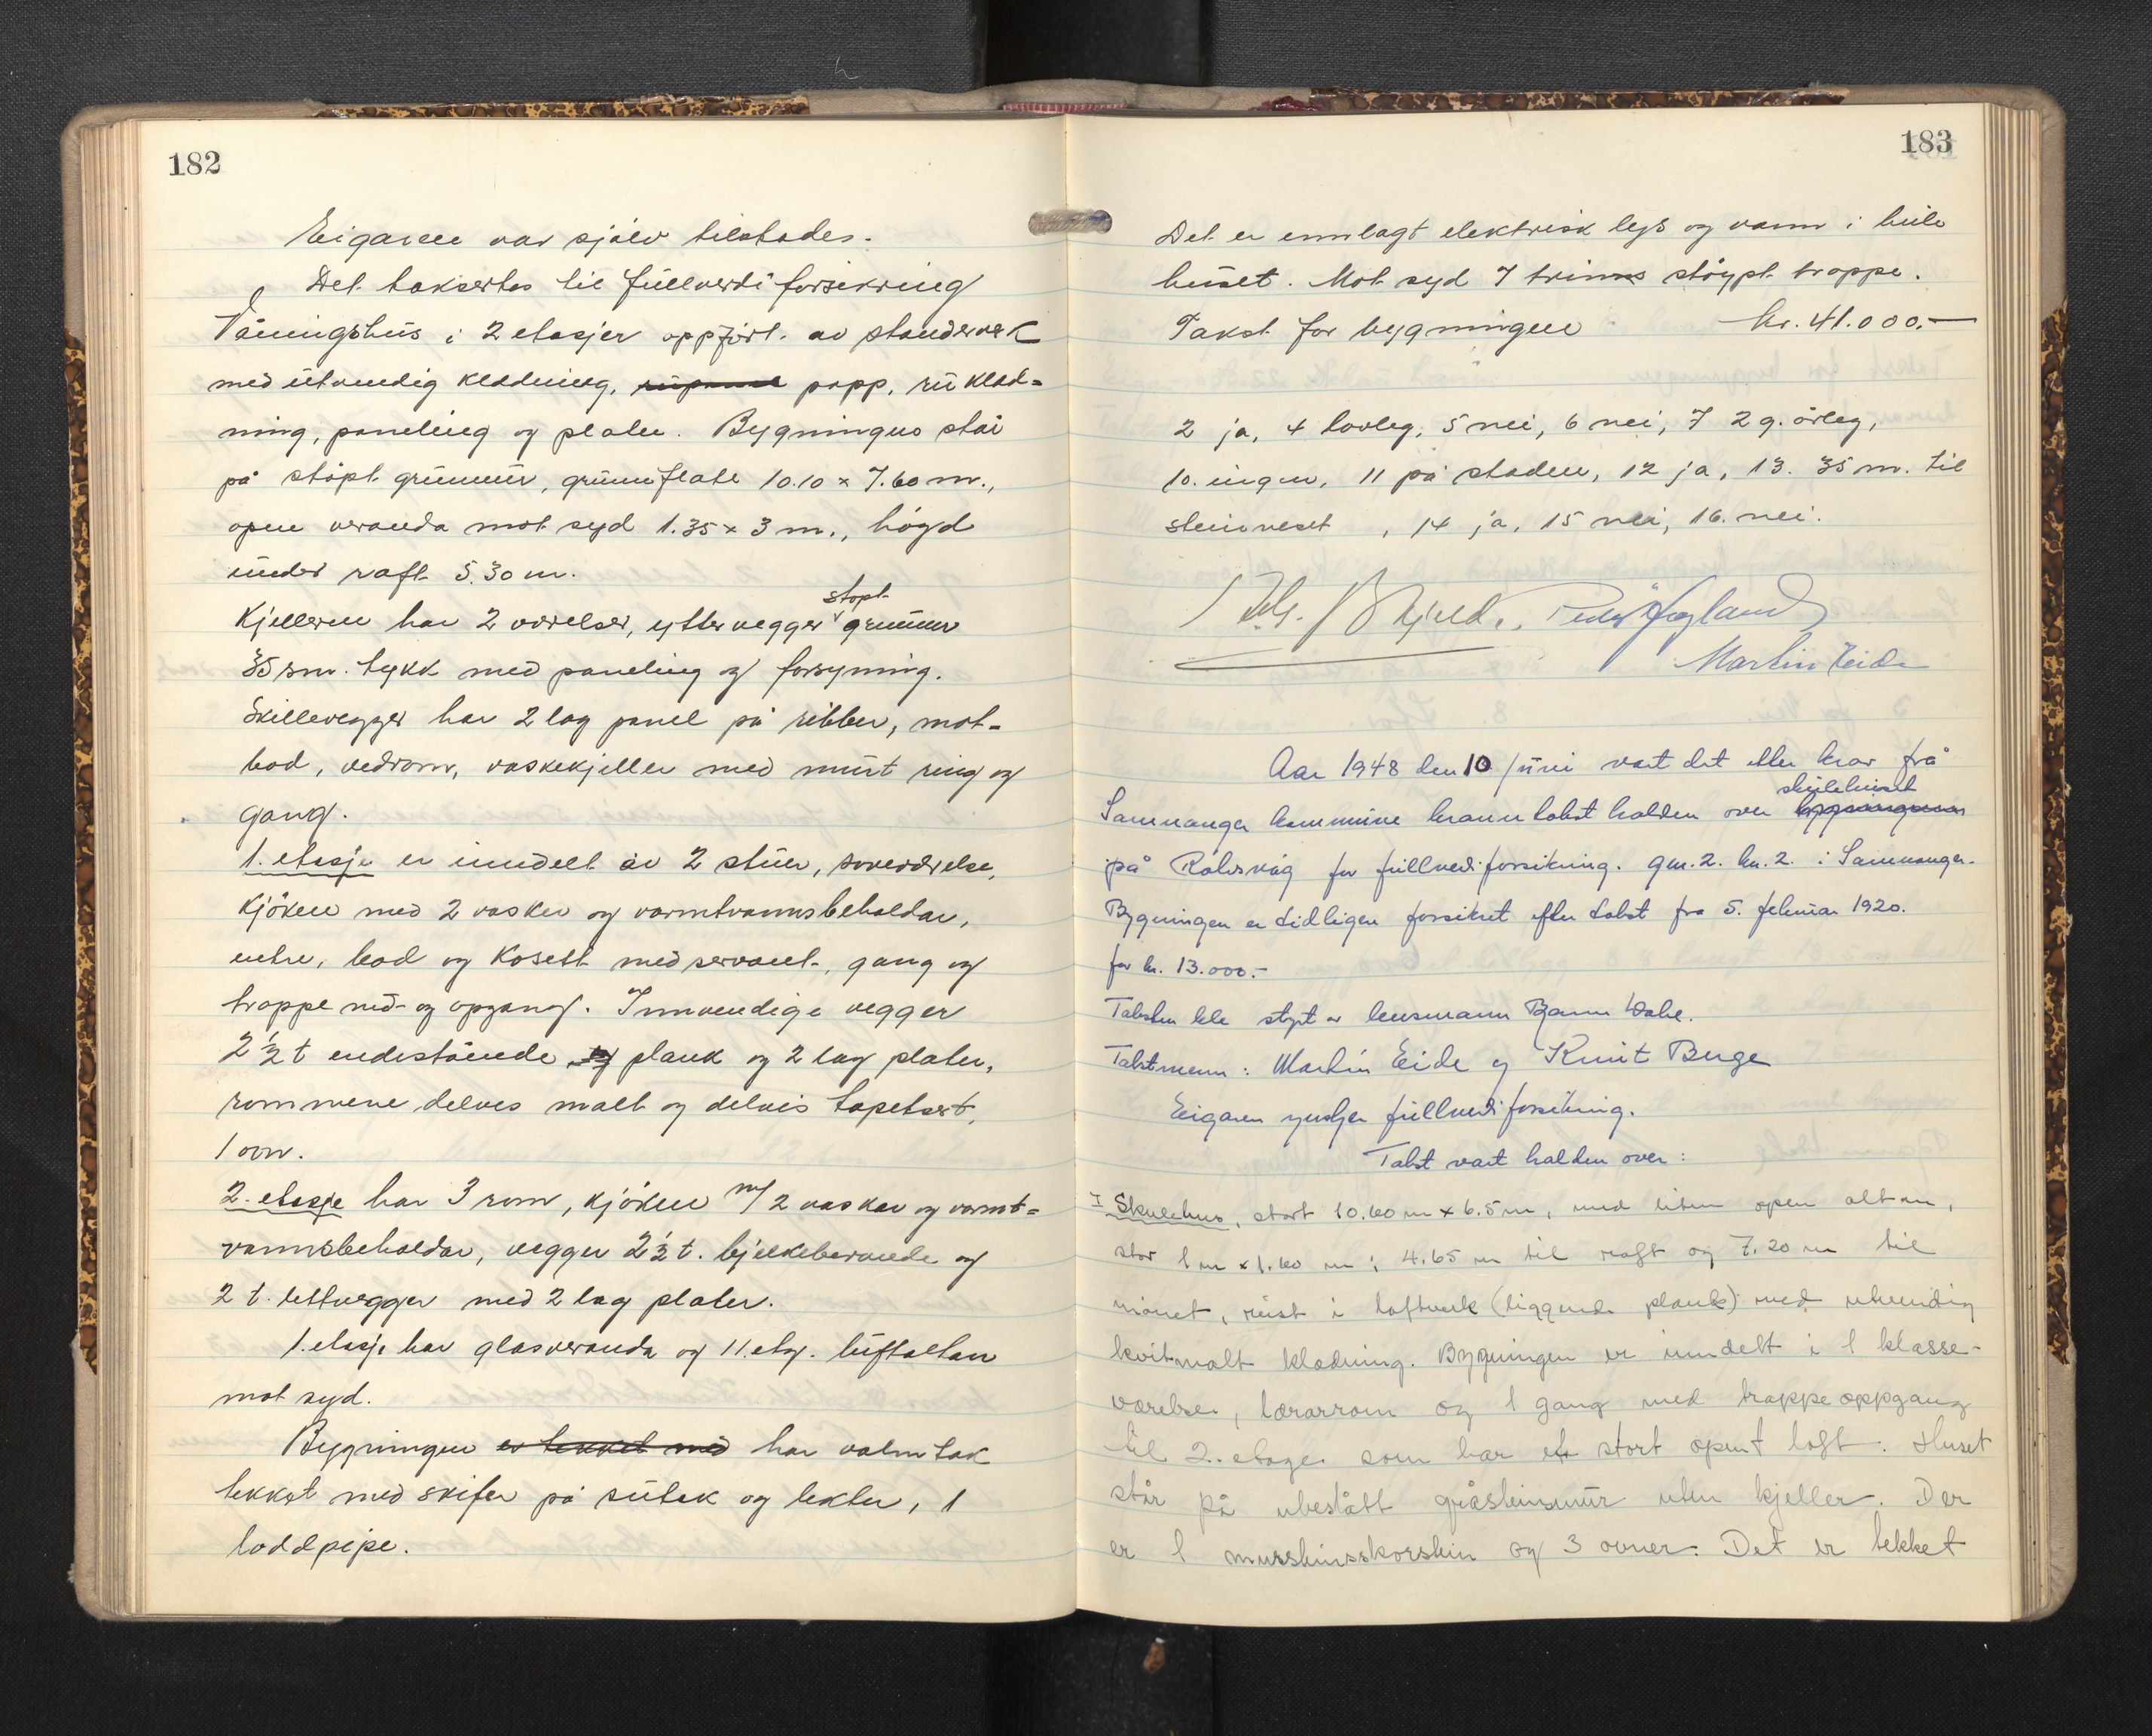 182
Eigaren var sjølv tilstades.
Det taksertes til fullverdiforsikring
Våningshus i 2 etasjer oppført av standverk
med utvendig kledning, papp, rukled=
ning, paneling og plater. Bygningen står
på støpt grunnmur, grunnflate 10.10 x 7.60 m.,
open veranda mot syd 1.35 x 3 m., høgd
under raft 5.30 m.
Kjelleren har 2 værelser, yttervegger støpt grunnmur
35 sm. tykk med paneling og forsyning.
Skillevegger har 2 lag panel på ribber, mat=
bod, vedrom, vaskekjeller med murt ring og
gang.
1. etasje er inndelt av 2 stuer, soveværelse,
kjøken med 2 vasker og varmtvannsbeholdar,
entre, bod og kosett med servant, gang og
trappe ned- og opgang. Innvendige vegger
2½ t endestående plank og 2 lag plater,
rommene delves malt og delvis tapetsert,
1 ovn.
2. etasje har 3 rom, kjøken m/ 2 vasker og varmt=
vannsbeholdar, vegger 2½ t. bjelkeberande og
2 t. lettvegger med 2 lag plater.
1. etasje har glasveranda og 11. etg. luftaltan
mot syd.
Bygningen er tekket med har valmtak
tekket med skifer på sutak og lekter, 1
loddpipe.
183
Det er innlagt elektrisk lys og vann i heile
huset. Mot syd 7 trinns støypt trappe.
Takst for bygningen kr. 41.000.-
2 ja, 4 lovleg, 5 nei, 6 nei, 7 2 g. årleg,
10. ingen, 11 på staden, 12 ja, 13. 35 m. til
, 14 ja, 15 nei, 16. nei.
Martin Eide
Aar 1948 den 10 juni vart det etter krav frå
Samnanger kommune branntakst halden over skulehuset
på Rolvsvåg for fullverdiforsikring. gnr. 2. bn. 2. i Samnanger.
Bygningen er tidligere forsikret efter takst fra 5. februar 1920.
for kr. 13.000.-
Taksten ble styrt av lensmann
Takstmenn: Martin Eide og Knut Berge
Eigaren ynskjer fullverdiforsikring.
Takst vart halden over:
I Skulehus, stort 10.60 m x 6.5 m, med liten open altan,
stor 1 m x 1.60 m; 4.65 m til raft og 7.20 m til
mønet, reist i laftverk (liggende plank) med utvendig
kvitmalt kledning. Bygningen er inndelt i 1 klasse-
værelse, lærarrom og 1 gang med trappeoppgang
til 2. etage som har et stort opent loft. Huset
står på ubestått gråsteinsmur uten kjeller. Der
er 1 mursteinsskorstein og 3 ovner. Det er tekket